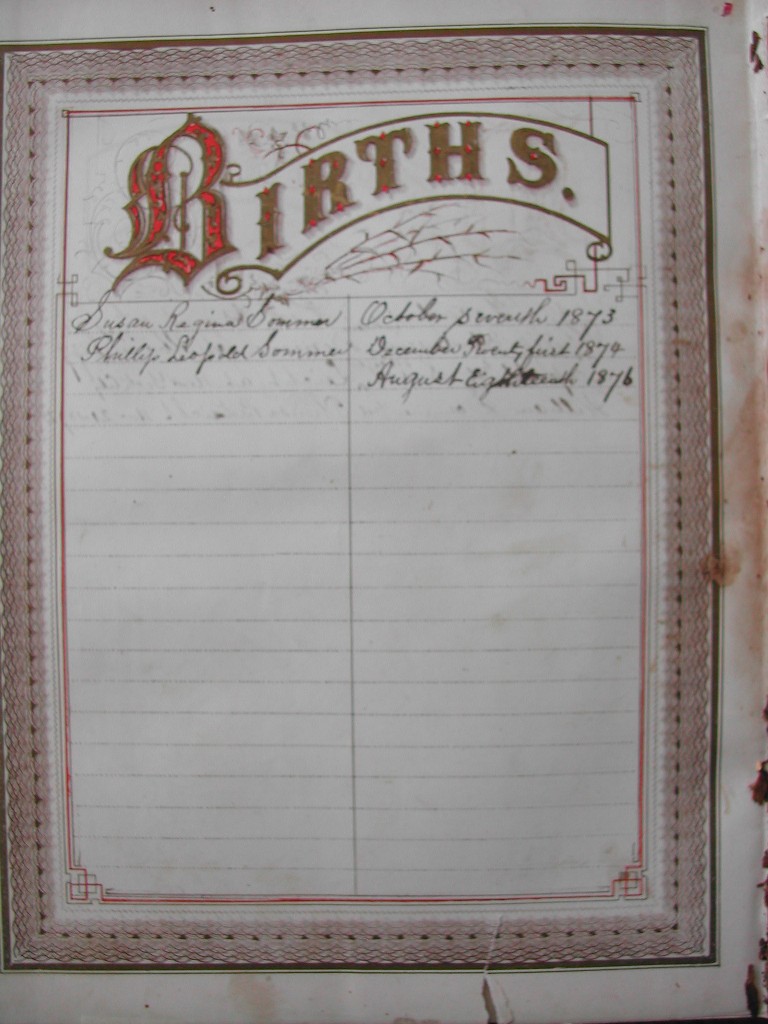 BIRTHS.
Susan Regina Sommer October Seventh 1873
Phillip Leopold Sommer December Twenty first 1874
August Eighteenth 1876